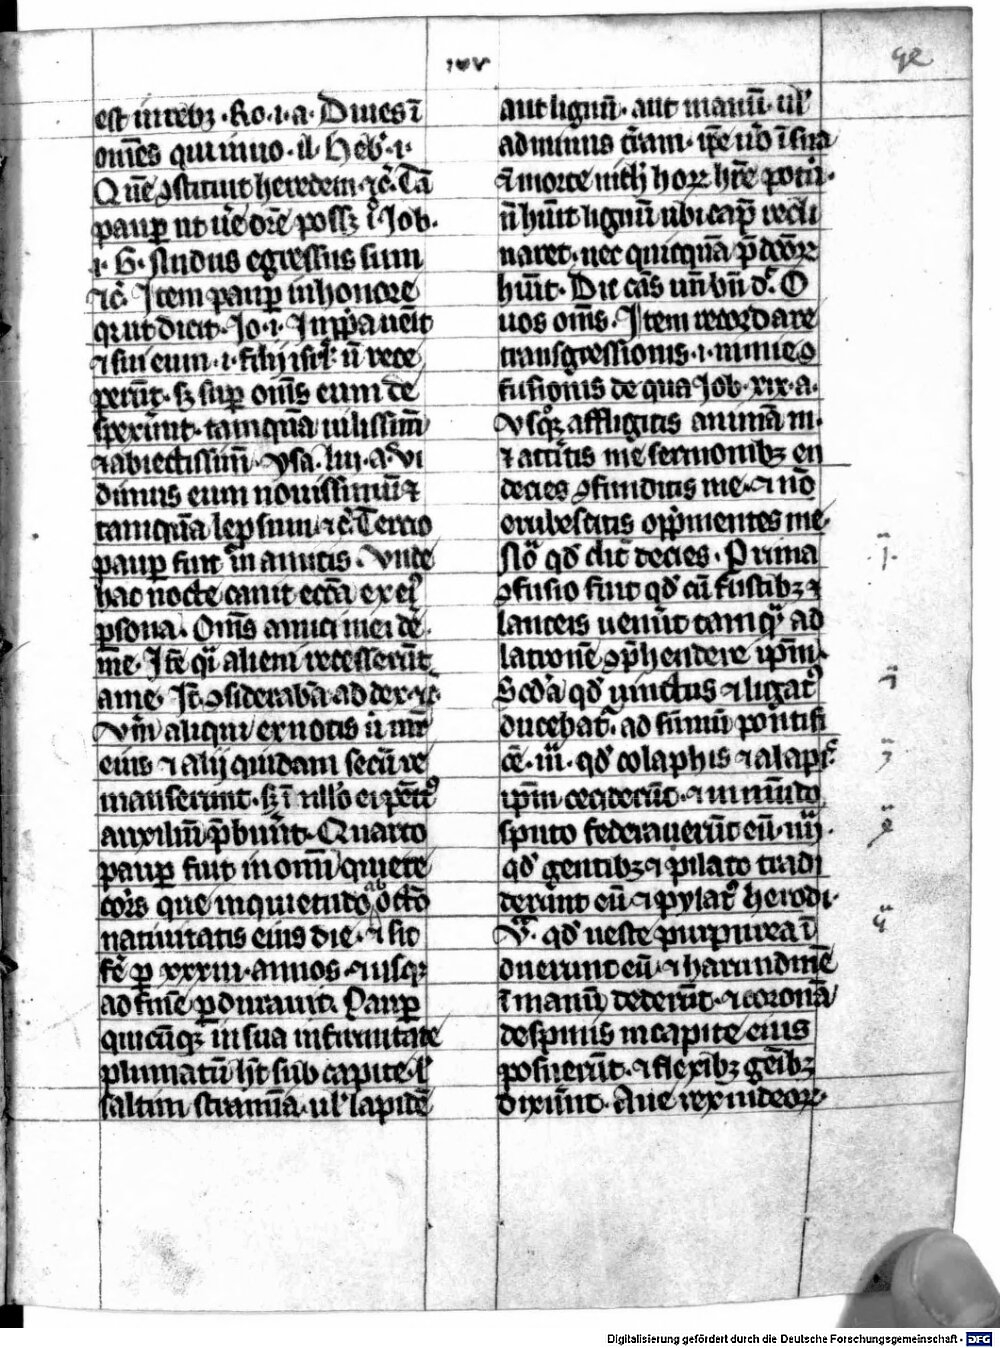 xxv
92
est in rebꝫ · Ro · i · a · Diues ī
om̄es qui inuo · il · Heb̾ · i ·
Quē ꝯstituit heredem ⁊c̄ · Tā
paup̲ ut uĒe d̄re possꝫ · Job ·
i · G · Nudus egressus sum
⁊c̄ · Item paup̲ in honore
dicit · Jo · i · In ꝓp̄a uenit
⁊ sui eum · i · filij isrl̾ n̄ rece
perūt · sꝫ sup̲ om̄s eum de
spexūnt · tamquā uilissim̄
⁊ abiectissim̄ · ysa · liii · a · vi
dimus eum nouissimū ⁊
tamquā lep̲sum ⁊c̄ · Tercio
paup̲ fuit in amicis · Vnde
hac nocte canit ecc̄a ex ei̾
p̲sona · Om̄s amici mei de
me · Itē qi alieni recesserūt
a me · It̄ ꝯsiderabā ad dex · ⁊c̄
aliqui ex notis
eius ⁊ alij quidam secū re
manserunt · sꝫ ī nllo̾ ei penit̾
auxiliū p̄bunt̄ · Quarto
paup̲ fuit in omī quiete
cor̾is que inquietudo ab octō
natiuitatis eius die · ⁊ sic
fē p̲ xxxiii · annos · ⁊ usqꝫ
ad finē p̲durauit · Paup̲
quicūqꝫ in sua infirmitate
plumatiū hꝫ sub capite · l̾
saltim stramīa · ul̾ lapidē
aut lignū · aut manū · ul̾
ad minus t̄ram · ip̄e u̾o ī sua
n̄ hūit lignū ubi cap̾ recli
naret · nec quicquā
hūit · Dic cās un̄ bn̄ dr̄ · O
uos om̄s · Item recordare
transgressionis · i · nimie ꝯ
fusionis de qua Job · xix · a ·
Vsqꝫ affligitis animā m ·
⁊ att̾itis me sermonibꝫ en
decies ꝯfunditis me · ⁊ nō
erubescitis opp̄mentes me ·
No̾ qd̾ dic̄ decies · Prima
ꝯfusio fuit qd̾ cū fustibꝫ ⁊
lanceis uen̄ūt tamqā ad
latronē ꝯp̄hendere ip̄m ·
Scd̾a qd̾ uinctus ⁊ ligat̾
ducebat̾ · ad summ̄ pontifi
cē · iii · qd̾ colaphis ⁊ alapis
ip̄m cecīderūt · ⁊ inmūdo
sputo fedauerūt eū · iiij ·
qd̾ gentibꝫ ⁊ pilato tradi
derunt eū · ⁊ pylat̾ herodi ·
V · qd̾ ueste purpurea ī
duerunt eū · ⁊ harundinē
ī manū dederūt · ⁊ coronā
de spinis in capite eius
posuerūt · ⁊ flexibꝫ genibꝫ
dixūnt · Aue rex iudeoꝝ ·